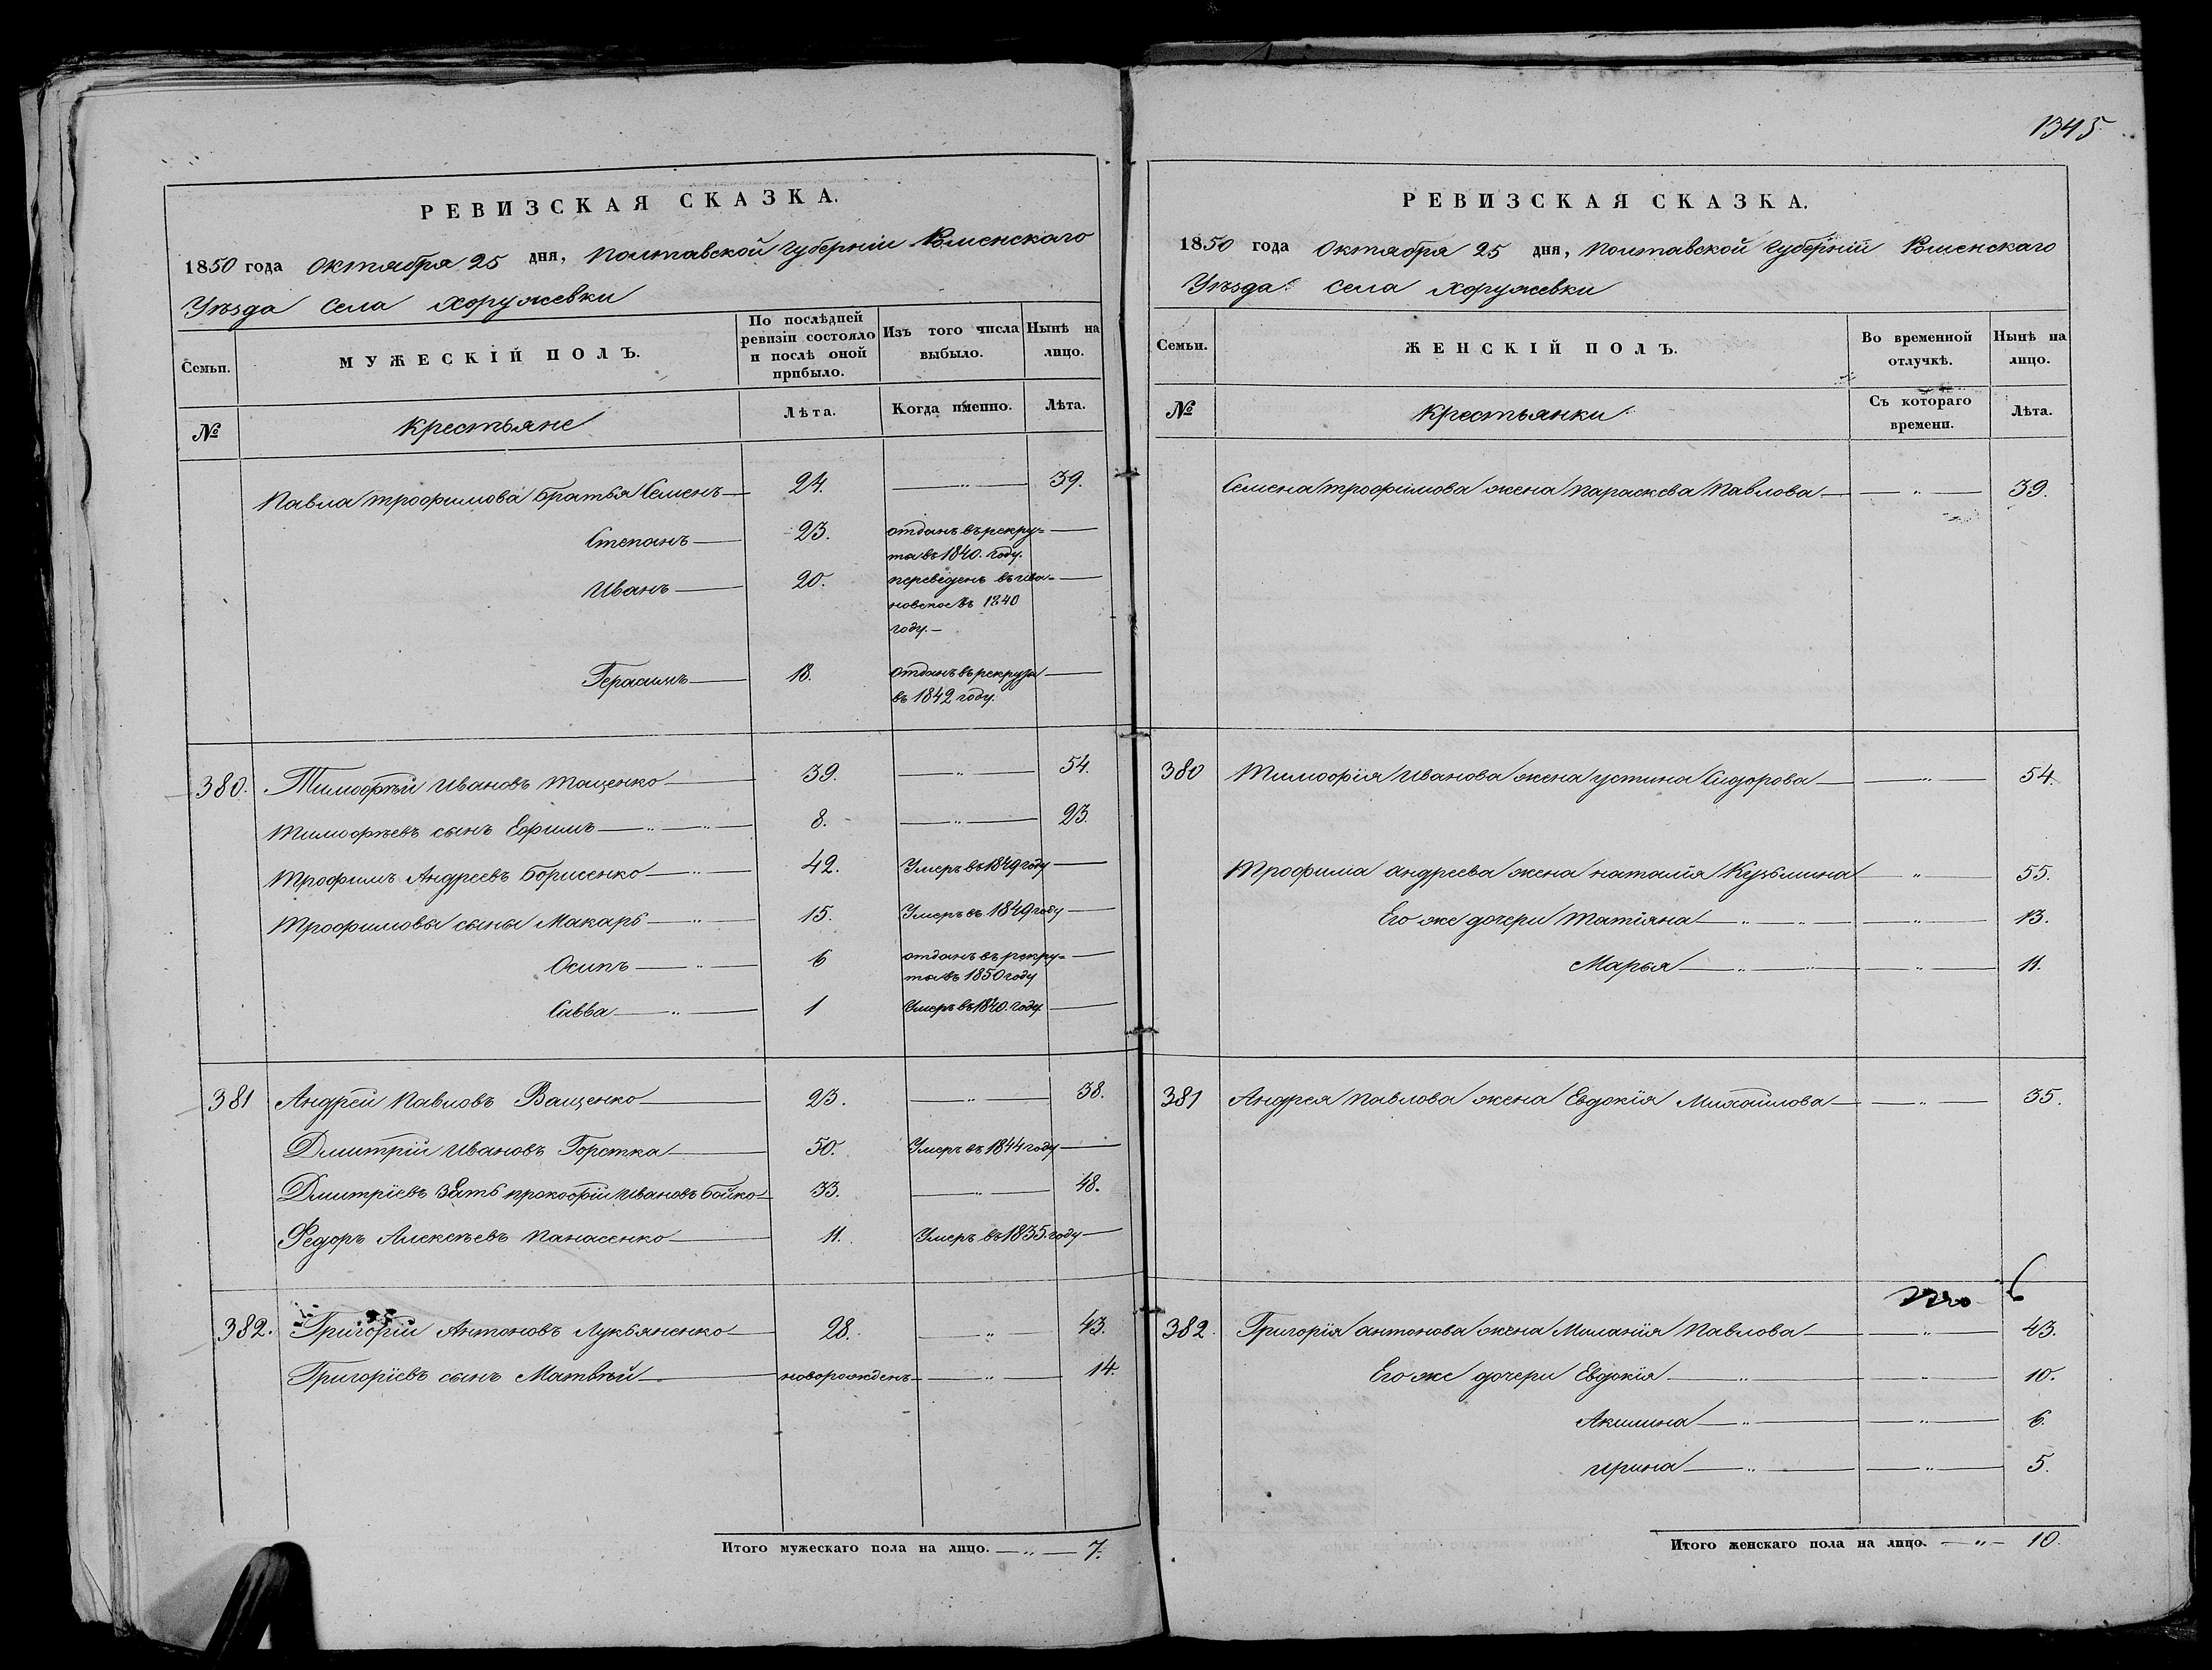 РЕВИЗСКАЯ СКАЗКА.
1850 года Октября 25 дня, Полтавской Губерніи Роменскаго
Уѣзда Села Хоружевки
Семьи.
МУЖЕСКІЙ ПОЛЪ.
По послѣдней ревизіи состояло и послѣ оной прибыло.
Изъ того числа выбыло.
Нынѣ на лицо.
№ Крестьяне Лѣта. Когда именно. Лѣта.
Павла Трофимова братья Семенъ 24. — „ — 39.
Степанъ 23. отданъ въ рекру=
та въ 1840. году.
Иванъ 20. переведенъ въ Ива=
новское въ 1840
году.
Герасимъ 18. Отданъ въ рекрута
въ 1842 году.
380. Тимофѣй Ивановъ Тащенко 39. — „ — 54.
Тимофѣевъ сынъ Ефимъ 8. — „ — 23.
Трофимъ Андреевъ Борисенко 42. Умеръ въ 1849 году
Трофимовы сыны Макаръ 15. Умеръ въ 1849 году
Осипъ 6 отданъ въ рекру=
та въ 1850 году
Савва 1 Умеръ въ 1840. году
381 Андрей Павловъ Ващенко 23. — „ — 38.
Дмитрій Ивановъ Горстка 50. Умеръ въ 1844 году
Дмитріевъ зять Прокофій Ивановъ Бойко 33. — „ — 48.
Федоръ Алексѣевъ Панасенко 11. Умеръ въ 1835. году
382. Григорій Антоновъ Лукьяненко 28. — „ — 43.
Григоріевъ сынъ Матвѣй новорожденъ — „ — 14.
Итого мужескаго пола на лицо. — „ — 7.
1345
РЕВИЗСКАЯ СКАЗКА.
1850 года Октября 25 дня, Полтавской Губерніи Роменскаго
Уѣзда Села Хоружевки
Семьи.
ЖЕНСКІЙ ПОЛЪ.
Во временной отлучкѣ.
Нынѣ на лицо.
№ Крестьянки Съ котораго времени. Лѣта.
Семена Трофимова жена Параскева Павлова — „ — 39.
380 Тимофія Иванова жена Устина Сидорова — „ — 54.
Трофима Андреева жена Наталія Кузьмина — „ — 55.
Его же дочери Татіяна — „ — 13.
Марья — „ — 11.
381 Андрея Павлова жена Евдокія Михайлова — „ — 35.
6
382. Григорія Антонова жена Миланія Павлова — „ — 43.
Его же дочери Евдокія — „ — 10.
Акилина — „ — 6.
Ирина — „ — 5.
Итого женскаго пола на лицо. — „ — 10.